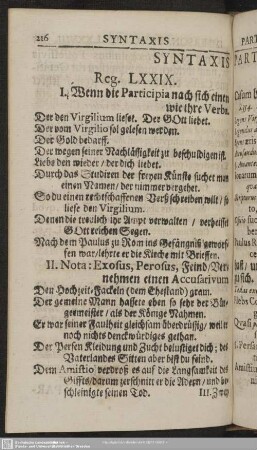 216 SYNTAXIS
SYNTAXIS
Reg. LXXIX.
I. Wenn die Participia nach sich einen
wie ihre Verba
Der den Virgilium lieset. Der GOtt liebet.
Der vom Virgilio sol gelesen werden.
Der Gold bedarff.
Der wegen seiner Nachlässigkeit zu beschuldigen ist.
Liebe den wieder / der dich liebet.
Durch das Studiren der freyen Künste suchet man
einen Namen / der nimmer vergehet.
So du einen rechtschaffenen Verß schreiben wilt / so
liese den Virgilium.
Denen die treulich ihr Ampt verwalten / verheisst
GOtt reichen Segen.
Nach dem Paulus zu Rom ins Gefängniß geworf-
fen war / lehrte er die Kirche mit Brieffen.
II. Nota: Exosus, Perosus, Feind / Ver-
nehmen einen Accusativum
Den Hochzeit-Fackeln (dem Ehestand) gram.
Der gemeine Mann hassete eben so sehr der Bür-
germeister / als der Könige Nahmen.
Er war seiner Faulheit gleichsam überdrüßig / weil er
noch nichts denckwürdiges gethan.
Der Persen Kleidung und Zucht belustiget dich; des
Vaterlandes Sitten aber bist du feind.
Dem Amictio verdroß es auf die Langsamkeit des
Giffts / darum zerschnitt er die Adern / und be-
schleinigte seinen Tod.
III. Zwey